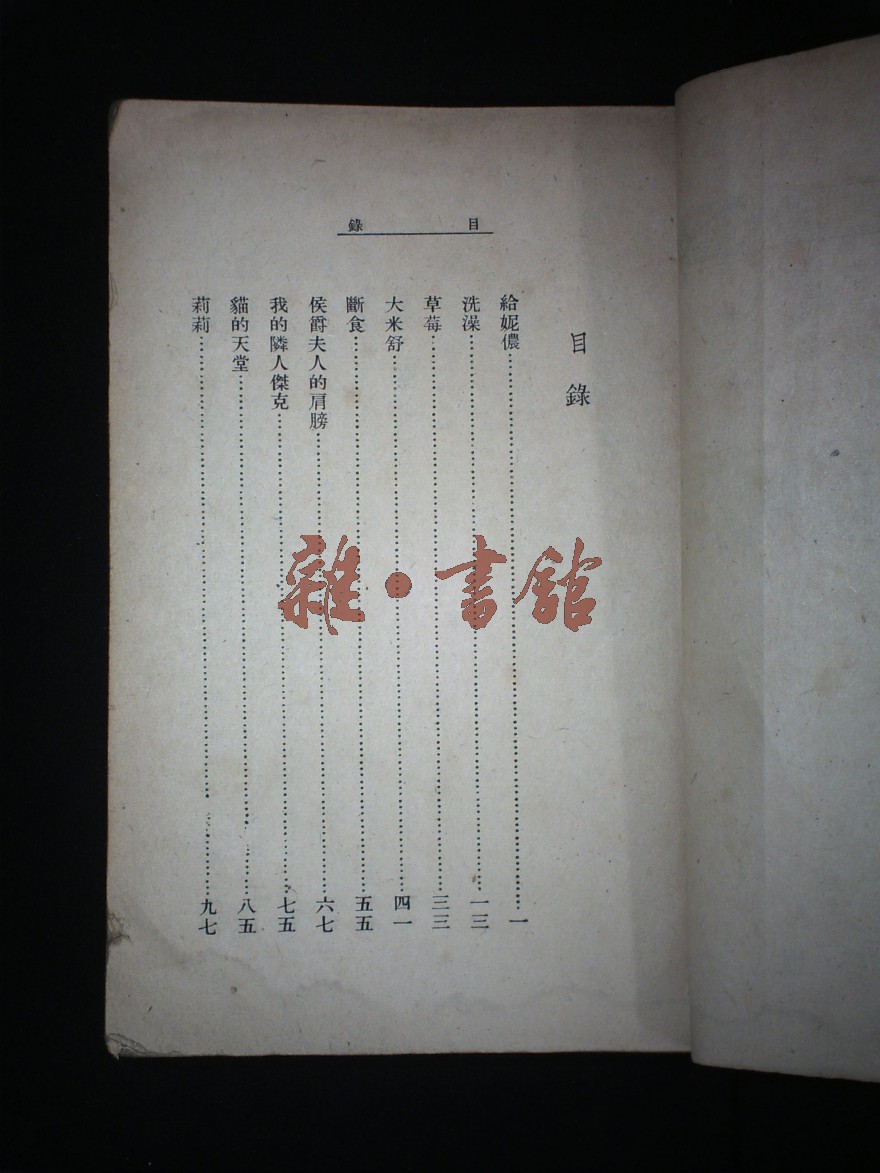 目錄
目錄
給妮儂……一
洗澡……一三
草莓……三三
大米舒……四一
斷食……五五
侯爵夫人的肩膀……六七
我的隣人傑克……七五
貓的天堂……八五
莉莉……九七
雜·書館